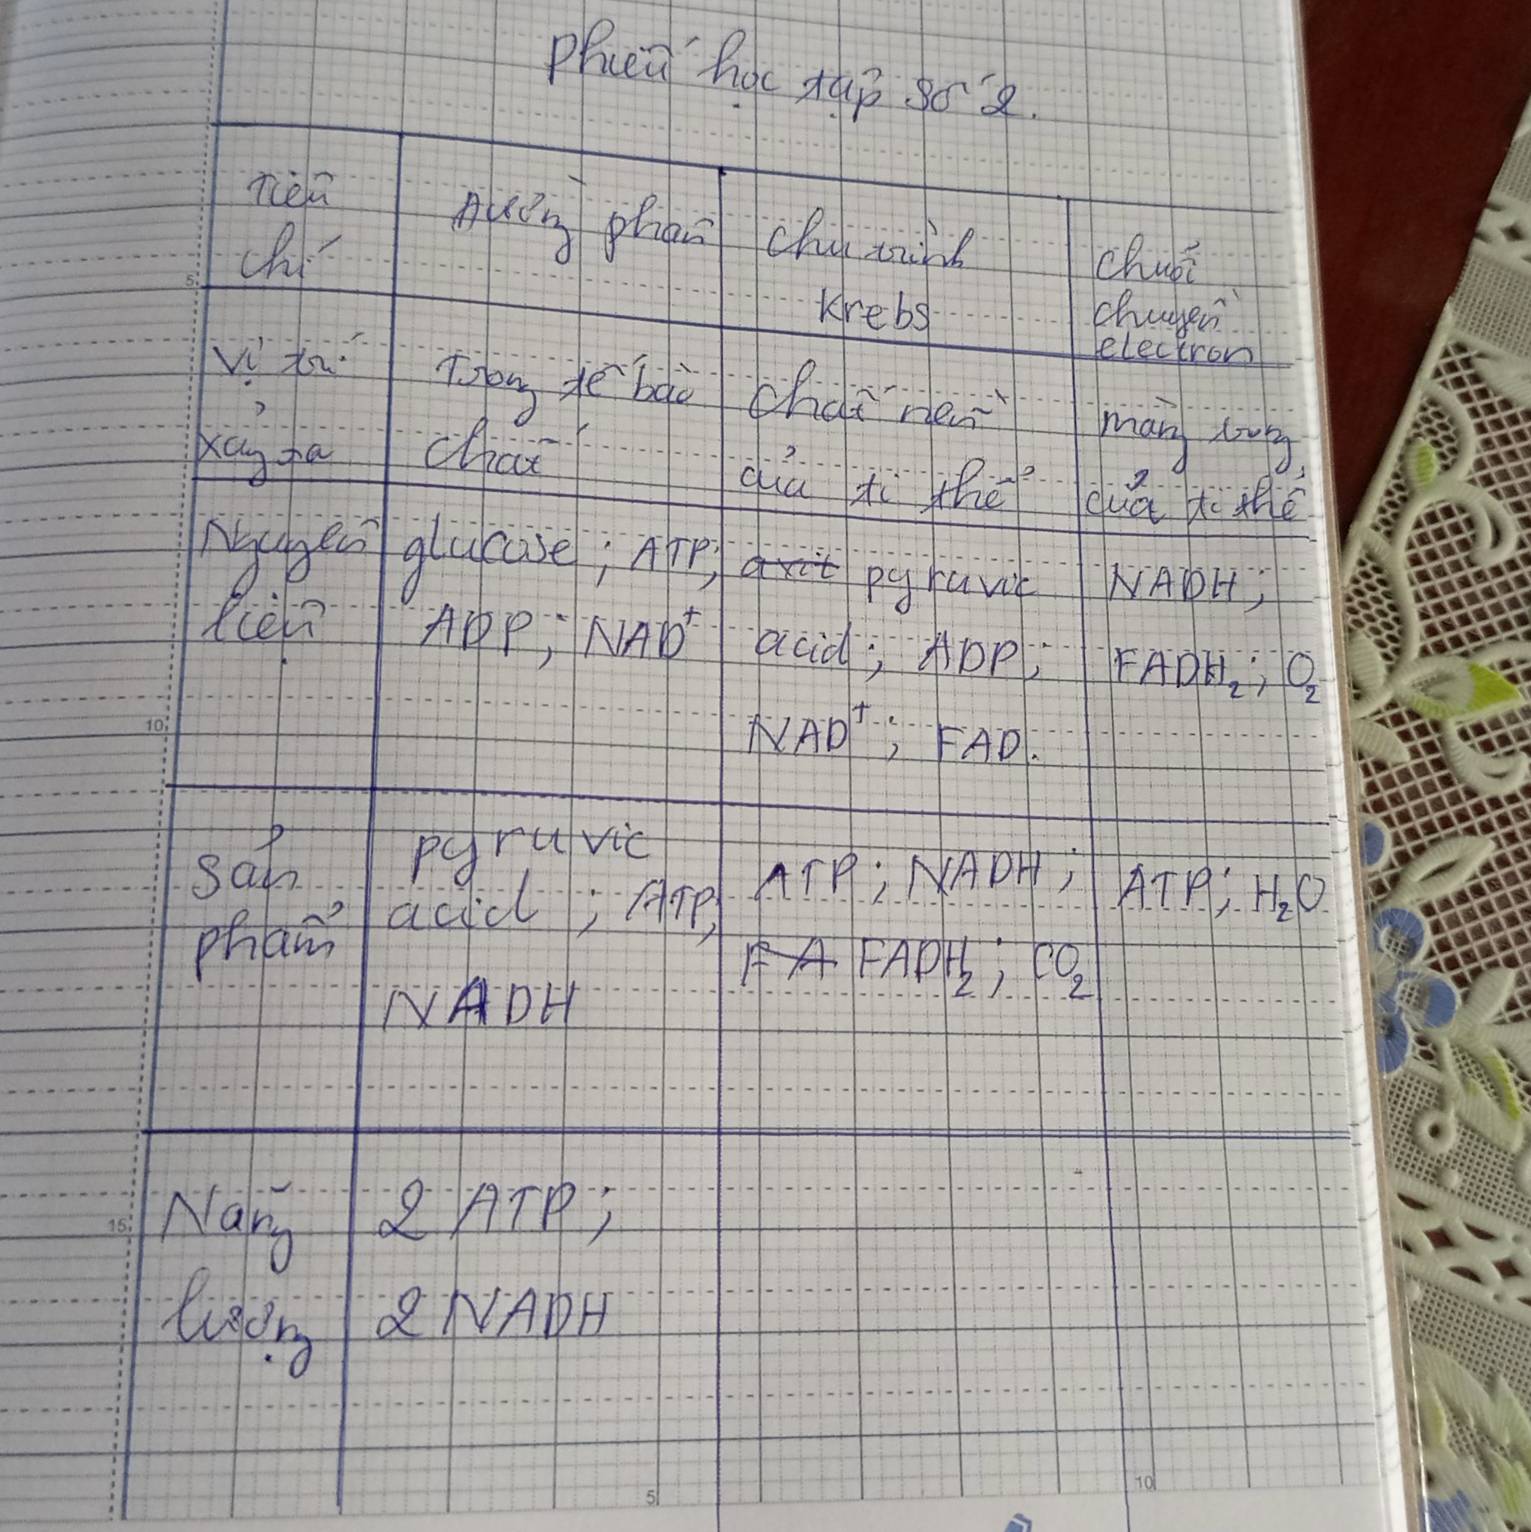 Phiếu học tập số 2.
Tiêu chí
Đường phân
Chu trình
Krebs
Chuỗi
chuyền
electron
Vị trí
xảy ra
Trong tế bào
chất
Chất nền
của ti thể
màng trong
của ti thể
Nguyên
liệu
glucose; ATP;
ADP; NAD+
axit pyruvic
acid; ADP;
NAD+; FAD.
NADH;
FADH2; O2
Sản
phẩm
pyruvic
acid; ATP;
NADH
ATP; NADH;
FA FADH2; CO2
ATP; H2O
Năng
lượng
2 ATP;
2 NADH
5
10
15
5
10